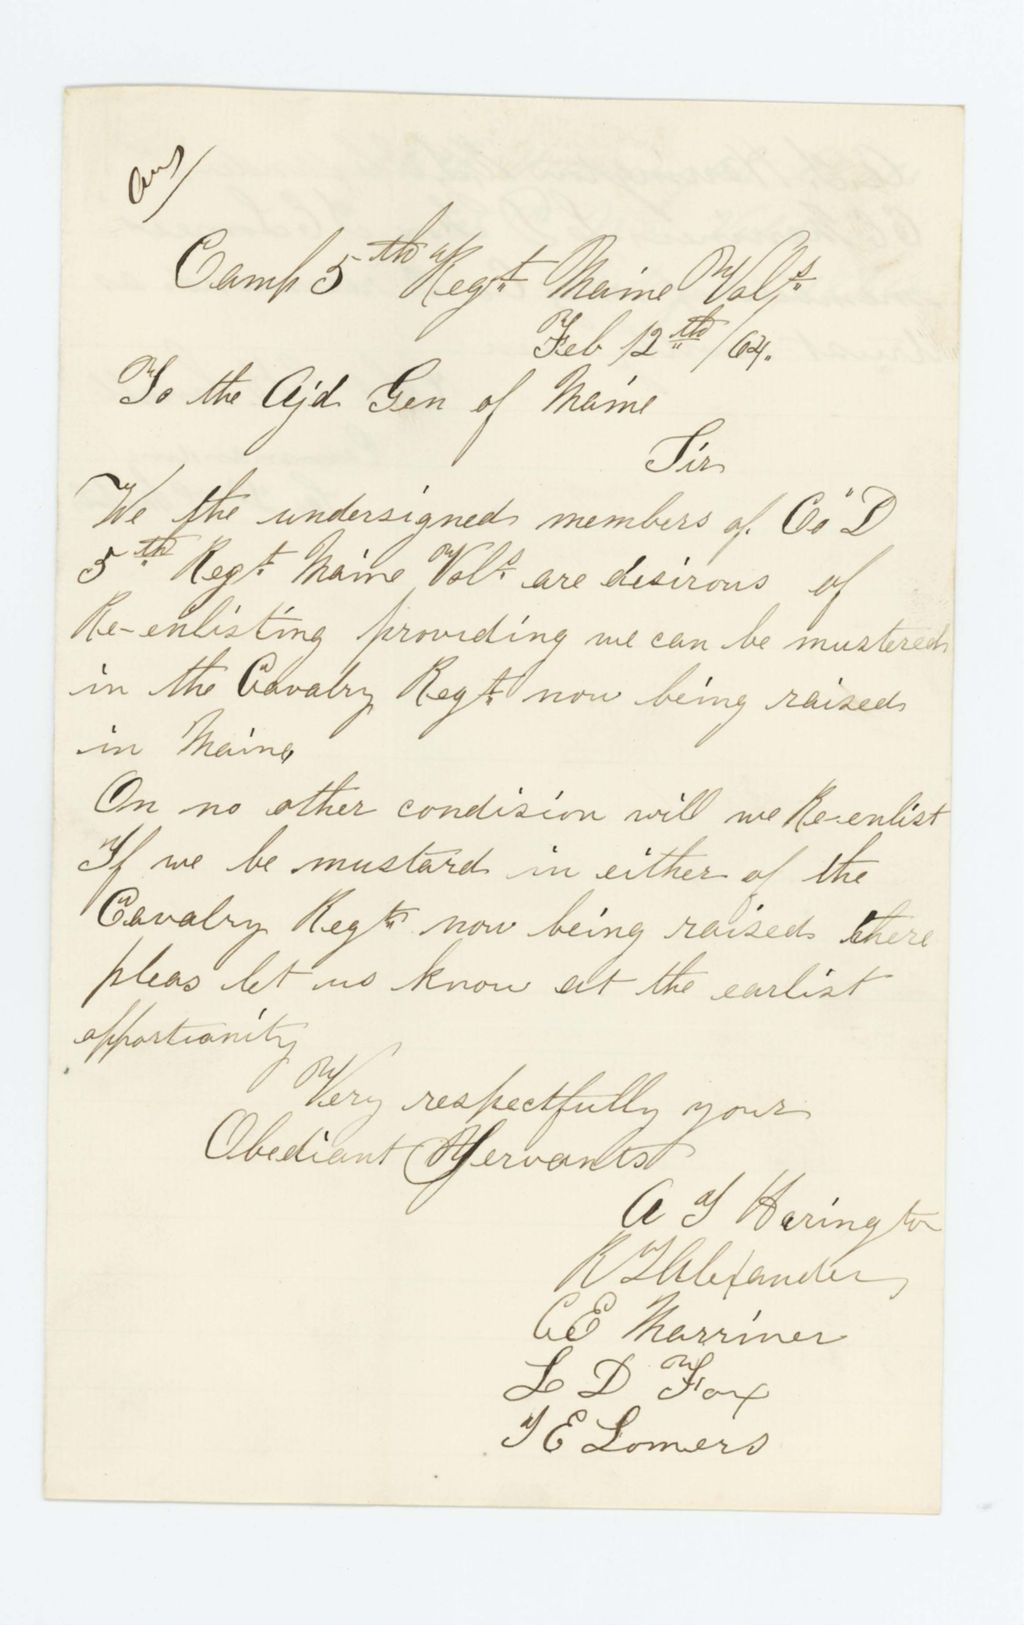 Ans
Camp 5th Regt Maine Vols
Feb 12th /64.
To the Ajd Gen of Maine
Sir
We the undersigned members of Co "D
5th Regt Maine Vols are desirous of
Re-enlisting providing we can be mustered
in the Cavalry Regt now being raised
in Maine
On no other condision will we Re-enlist
If we be mustard in either of the
Cavalry Regts now being raised there
pleas let us know at the earlist
opportianity
Very respectfully your
Obediant Servants
A T Harington
R T Alexander
C E Marriner
L D Fox
T E Lomers